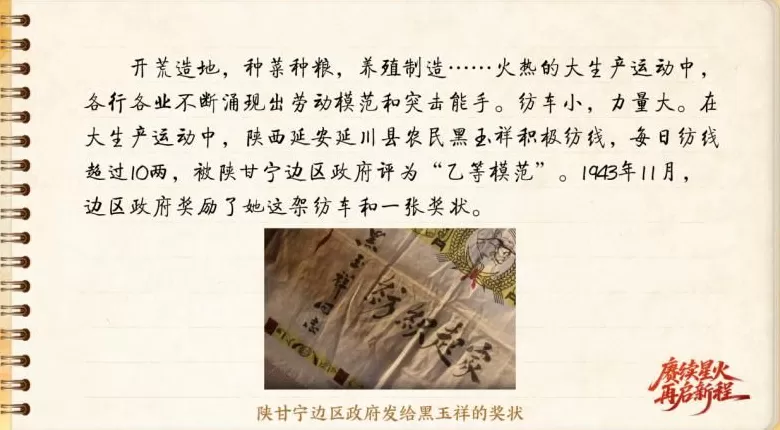 开荒造地，种菜种粮，养殖制造……火热的大生产运动中，
各行各业不断涌现出劳动模范和突击能手。纺车小，力量大。在
大生产运动中，陕西延安延川县农民黑玉祥积极纺线，每日纺线
超过10两，被陕甘宁边区政府评为“乙等模范”。1943年11月，
边区政府奖励了她这架纺车和一张奖状。
黑玉祥同志
纺织起家
陕甘宁边区政府发给黑玉祥的奖状
赓续星火
再启新程